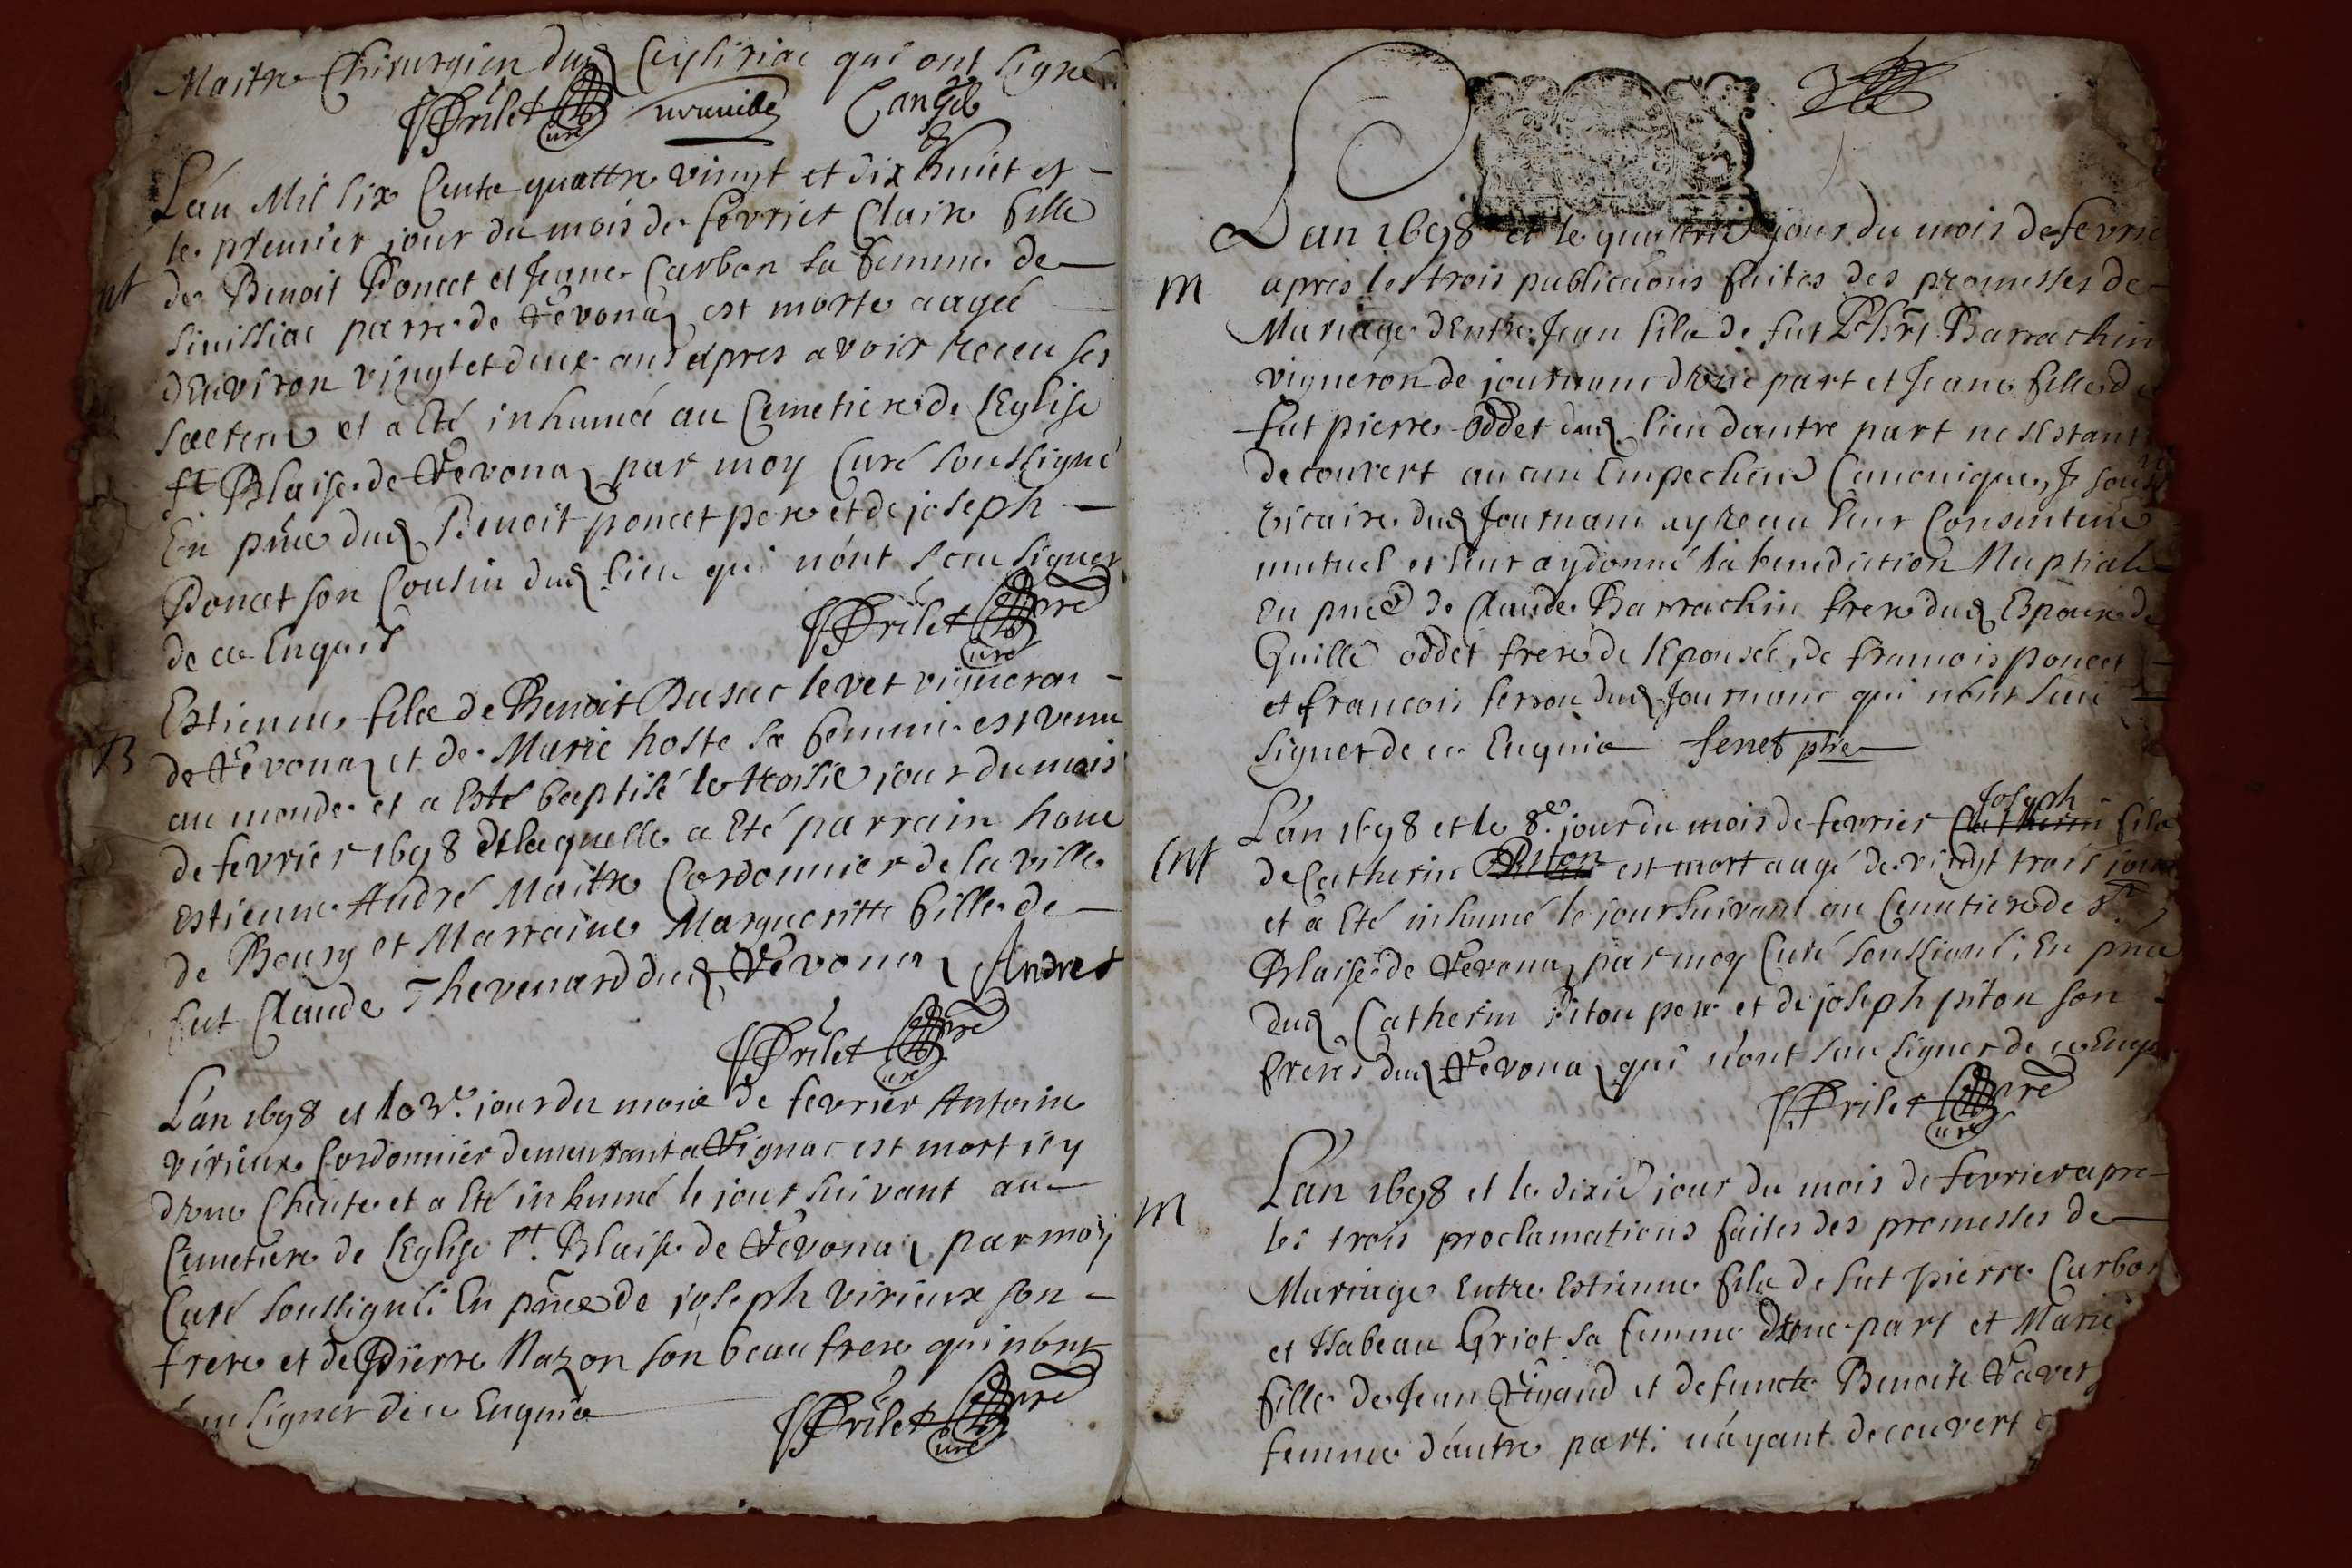 Maitre Chirurgien dud Ceyliriac qui ont Signé
Frilet Curé
L'an Mil Six Cents quattre vingt et dix huict et
le premier jour du mois de fevrier Claire fille
de Benoit Poncet et Jeanne Carbon sa femme de
Simissiac parre de Revona est morte aagée
d'environ vingt et deux ans apres avoir receu ses
Sacrem et a Eté inhumée au Cemetiere de l'Eglise
St Blaise de Revona par moy Curé Soussigné
En pnce dud Benoit poncet pere et de joseph
Poncet son Cousin dud lieu qui n'ont sceu signer
de ce Enquis
Frilet pre Curé
B
Estienne fils de Benoit Dusuc levet vigneron
de Revona et de Marie hoste sa femme est venu
au monde et a Esté baptisé le troisie jour du mois
de fevrier 1698 de laquelle a Eté parrain hone
Estienne André Maitre Cordonnier de la ville
de Bourg et Marraine Margueritte fille de
fut Claude Thevenard dud Revona Andret
Frilet pre Curé
L'an 1698 et le 3e jour du mois de fevrier Antoine
virieux Cordonnier demeurant a Rignac est mort icy
d'une Cheute et a Eté inhumé le jour suivant au
Cemetiere de l'Eglise St Blaise de Revona par moy
Curé soussigné. En pnce de joseph virieux son
frere et de Pierre Mazon son beau frere qui n'ont
signer de ce Enquis
Frilet pre Curé
L'an 1698 et le quattrie jour du mois de fevrie
M
apres les trois publications faites des promesses de
Mariage d'Entre Jean fils de fut Phi Barrachin
vigneron de journanc d'une part et Jeane fille de
fut pierre oddet dud lieu d'autre part ne s'estant
decouvert aucun Empechem Canonique, Je sous
vicaire dud Journanc ay receu leur Consentem
mutuel et leur ay donné la benediction Nuptiale
En pnce de Claude Barrachin frere dud Epoux de
Guille oddet frere de l'Epousée, de francois poncet
et francois ferrou dud Journanc qui n'ont sceu
Signer de ce Enquis fenet ptre
Joseph
L'an 1698 et le 8e jour du mois de fevrier Catherin fils
Ent
de Catherin Piton est mort aagé de vingt trois jours
et a Eté inhumé le jour suivant au Cemetiere de St
Blaise de Revona par moy Curé soussigné. En pnce
dud Catherin Piton pere et de joseph piton son
freres dud Revona qui n'ont sceu signer de ce Enq
Frilet pre Curé
L'an 1698 et le dixie jour du mois de fevrier apre
M
les trois proclamations faites des promesses de
Mariage Entre Estienne fils de fut pierre Carbon
et Isabeau Griot sa femme d'une part et Marie
fille de Jean Rigaud et defuncte Benoite Ravet
femme d'autre part. n'ayant decouvert